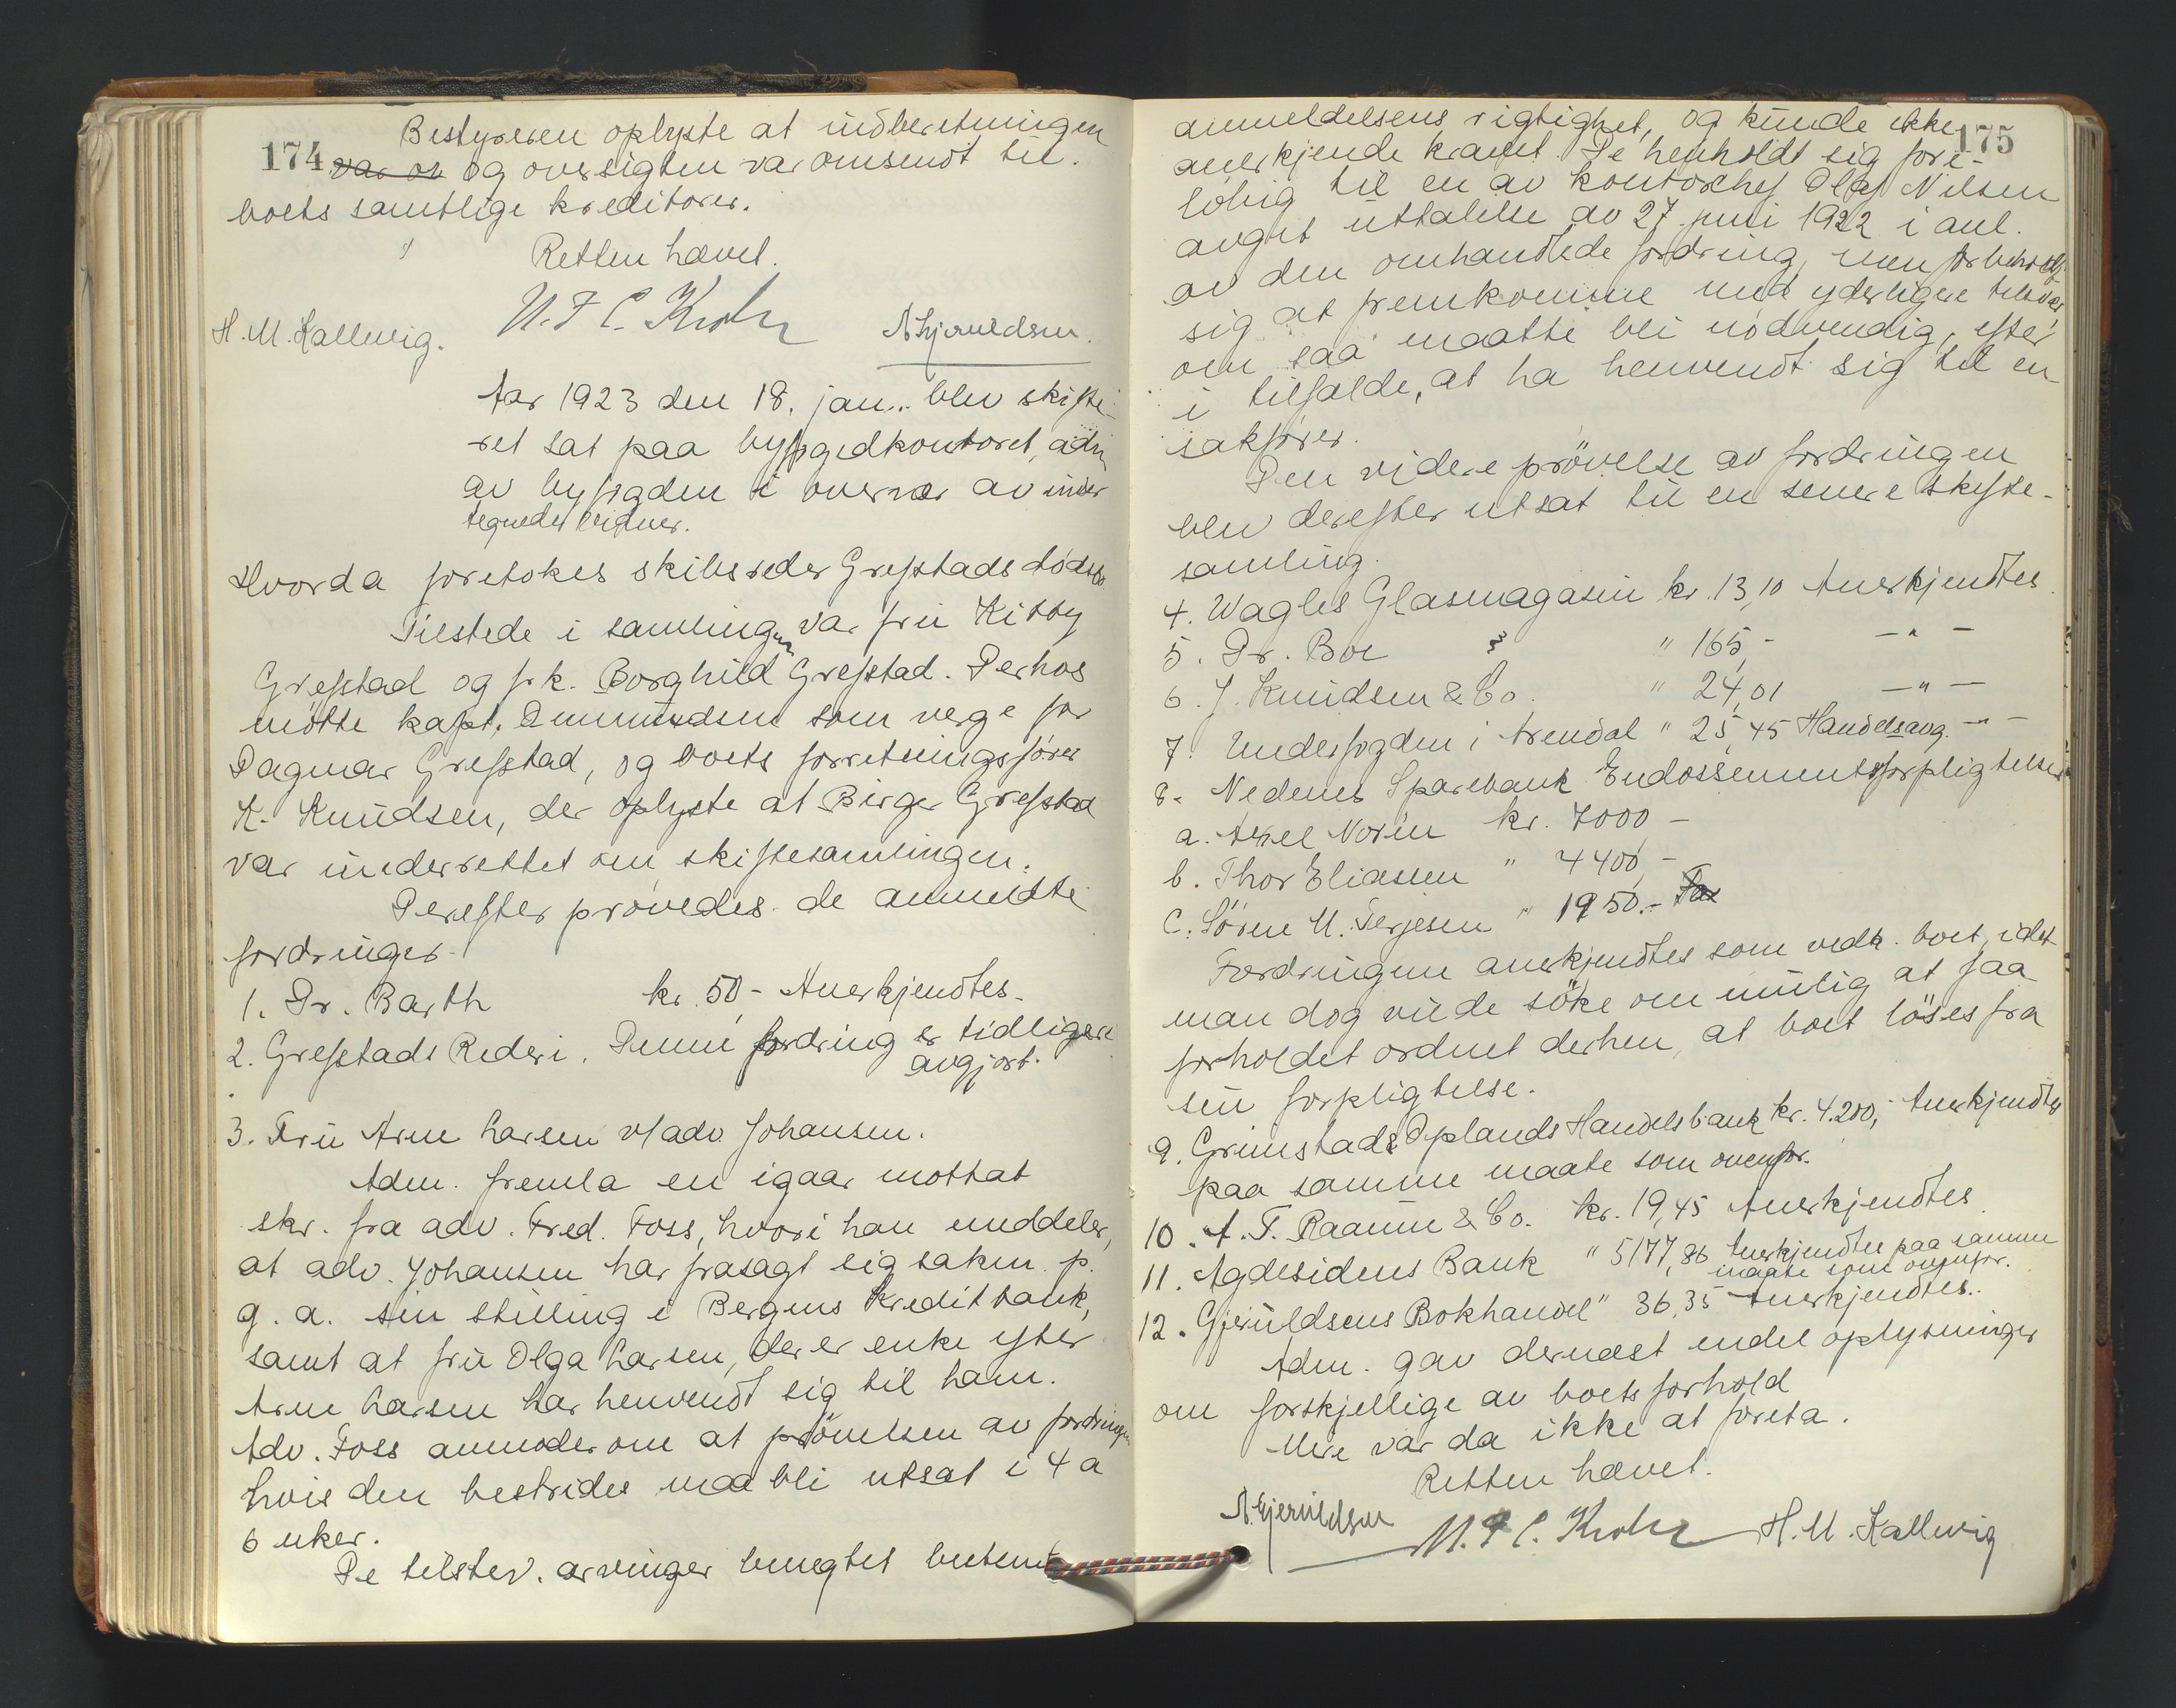 174
Bestyreren oplyste at indberetningen
var ov og oversigten var omsendt til
boets samtlige kreditorer.
Retten hævet.
H. M. Kallevig. N. F C. Krohn AGjeruldsen.
Aar 1923 den 18. jan. blev skifte-
ret sat paa byfogedkontoret, adm
av byfogden i overvær av under
tegnede vidner.
Hvorda foretokes skibsreder Grefstads dødsbo
Tilstede i samlingen var fru Kitty
Grefstad og frk. Borghild Grefstad. Derhos
møtte kapt. som verge for
Dagmar Grefstad, og boets forretningsfører
K. Knudsen, der oplyste at Birger Grefstad
var underrettet om skiftesamlingen.
Derefter prøvedes de anmeldte
fordringer.
1. Dr. Barth kr. 50,- Anerkjendtes.
2. Grefstads Rederi. Denne fordring er tidligere
avgjort.
3. Fru Arne Larsen v/adv. Johansen.
Adm. fremla en igaar mottat
skr. fra adv. Fred. Foss, hvori han meddeler,
at adv. Johansen har frasagt sig saken p.
g. a. sin stilling i Bergens Kreditbank,
samt at fru Olga Larsen, der er enke efter
Arne Larsen har henvendt sig til ham.
Adv. Foss anmoder om at prøvelsen av fordringen
hvis den bestrides maa bli utsat i 4 a
6 uker.
De tilstev. arvinger benegtet bestemt
175
anmeldelsens rigtighet, og kunde ikke
anerkjende kravet. De henholdt sig fore-
løbig til en av kontorchef Olaf Nilsen
avgit uttalelse av 27 juni 1922 i anl.
av den omhandlede fordring, men forbeholdt
sig at fremkomme med yderligere tilsvar
om saa maatte bli nødvendig, efter
i tilfælde, at ha henvendt sig til en
sakfører.
Den videre prøvelse av fordringen
blev derefter utsat til en senere skifte-
samling.
4. Wagles Glasmagasin kr. 13,10 Anerkjendtes
5. Dr. Boe " 165,- —"—
6. J. Knudsen & Co. " 24,01 —"—
7. Underfogden i Arendal " 25,45 Handelsavg. —"—
8. Nedenes Sparebank Endossementsforpligtelser
a. Axel Norin kr. 7000 —
b. Thor Eliassen " 4400,-
c. Søren M. Terjesen " 1950.- For
Fordringene anerkjendtes som vedk. boet, idet
man dog vilde søke om mulig at faa
forholdet ordnet derhen, at boet løses fra
sin forpligtelse.
9. Grimstad & Oplands Handelsbank kr. 4.200,- Anerkjendtes
paa samme maate som ovenfor.
10. A. T. Raanum & Co. kr. 19,45 Anerkjendtes
11. Agdesidens Bank " 5177,86 Anerkjendtes paa samme
maate som ovenfor.
12. Gjeruldsens Bokhandel " 36,35 Anerkjendtes.
Adm. gav dernæst endel oplysninger
om forskjellige av boets forhold
Mere var da ikke at foreta.
Retten hævet.
A. Gjeruldsen N. F C. Krohn H. M. Kallevig